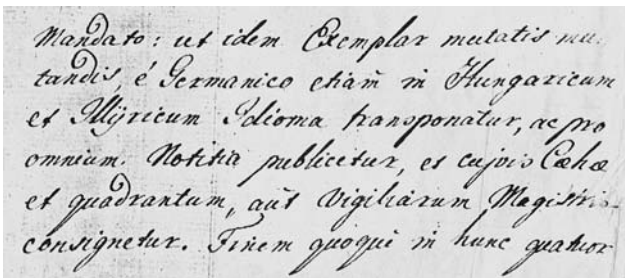 Mandato: ut idem Exemplar mutatis mu-
tandis, é Germanico etiam̃ in Hungaricum
et Illÿricum Idioma transponatur, ac pro
omnium Notitia publicetur, et cujvis Cæhæ
et quadrantum, aut̃ Vigiliarum Magistris
consignetur. Finem quoque in hunc quatuor